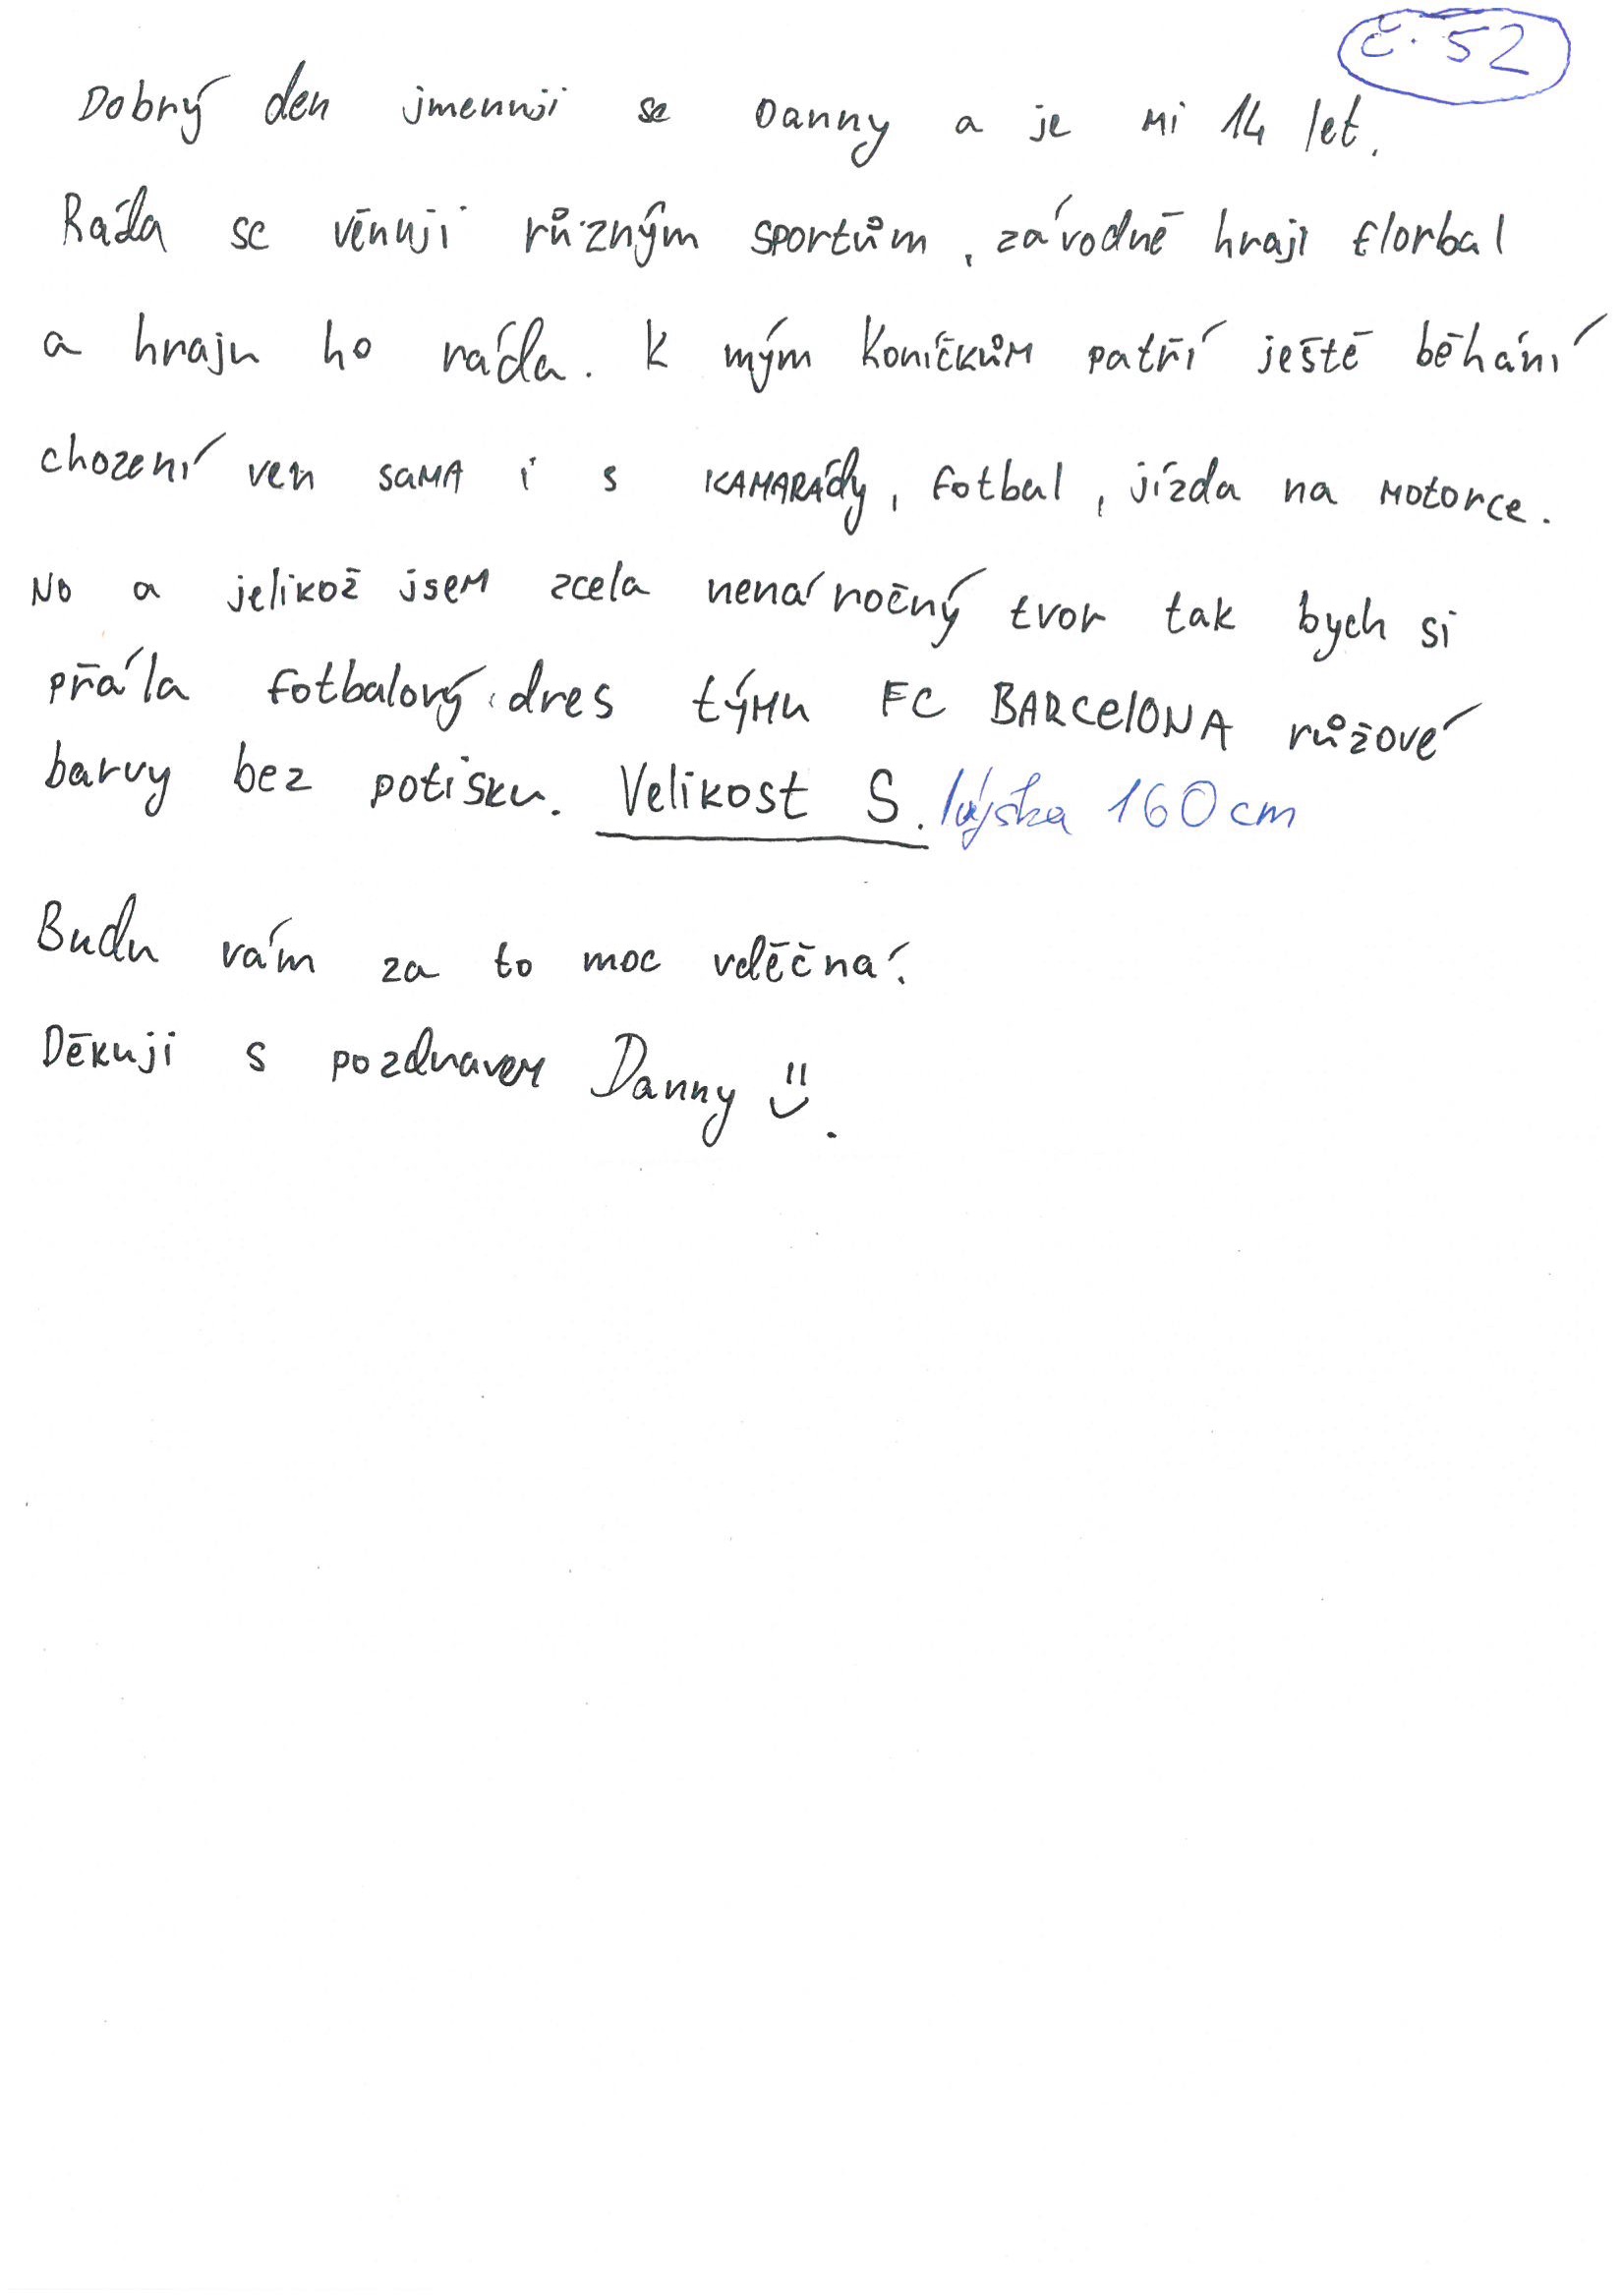 č. 52
Dobrý den jmenuji se Danny a je mi 14 let.
Ráda se věnuji různým sportům, závodně hraji florbal
a hraju ho ráda. K mým koníčkům patří ještě běhání
chození ven saMA i s KAMARÁdy, fotbal, jízda na motorce.
No a jelikož jsem zcela nenáročný tvor tak bych si
přála fotbalový dres týmu FC BARCelONA růžové
barvy bez potisku. Velikost S. výška 160 cm
Budu vám za to moc vděčná.
Děkuji s pozdravem Danny .